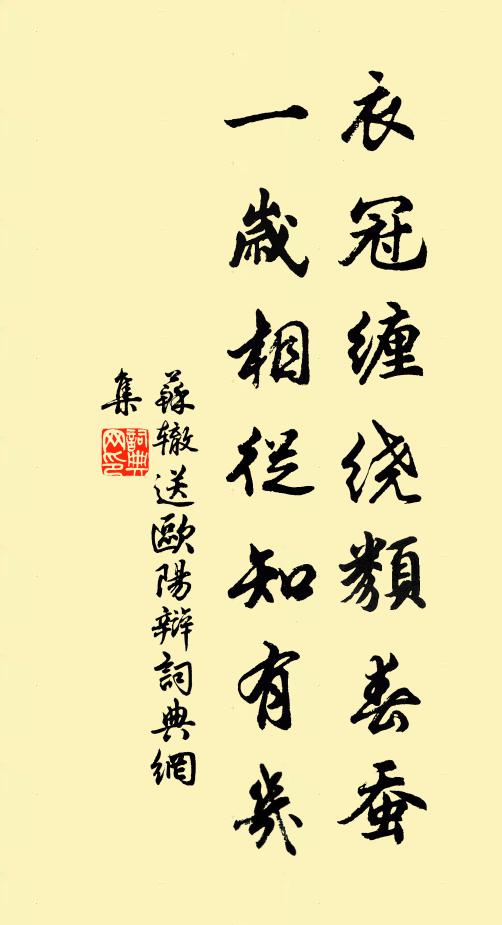 衣冠缠绕類春蚕
一歲相從知有幾
蘇辙送歐陽辯詞典網
集
詞典網印